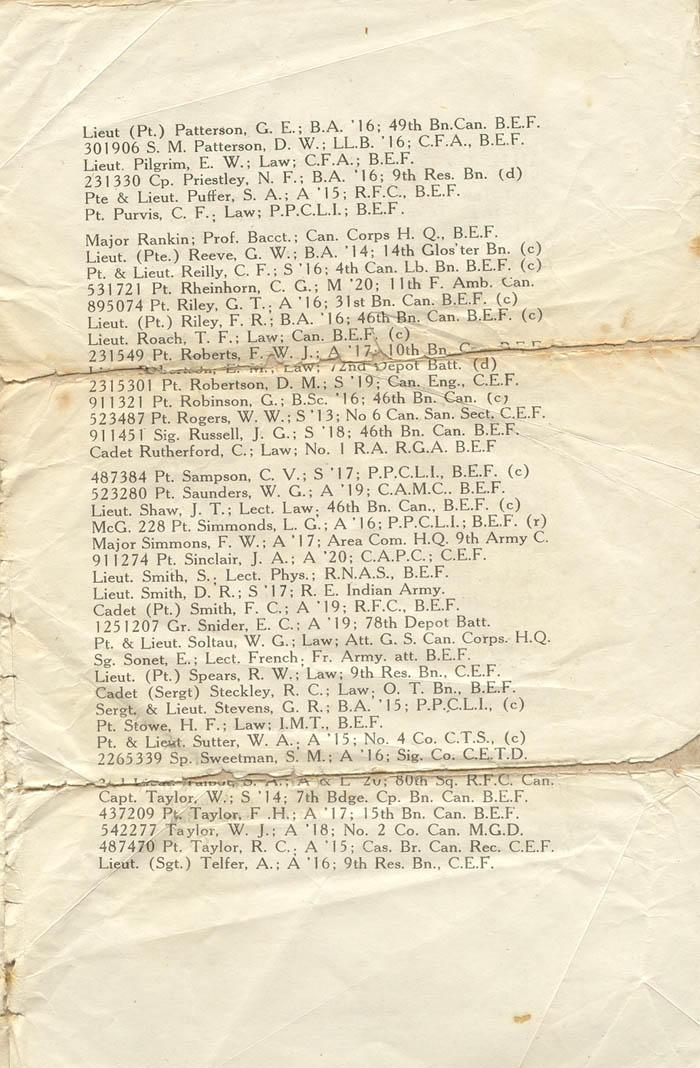 Lieut (Pt.) Patterson, G. E.; B.A. '16; 49th Bn.Can. B.E.F.
301906 S. M. Patterson, D. W.; LL.B. '16; C.F.A., B.E.F.
Lieut. Pilgrim, E. W.; Law; C.F.A.; B.E.F.
231330 Cp. Priestley, N. F.; B.A. '16; 9th Res. Bn. (d)
Pte & Lieut. Puffer, S. A.; A '15; R.F.C., B.E.F.
Pt. Purvis, C. F.; Law; P.P.C.L.I.; B.E.F.
Major Rankin; Prof. Bacct.; Can. Corps H. Q., B.E.F.
Lieut. (Pte.) Reeve, G. W.; B.A. '14; 14th Glos'ter Bn. (c)
Pt. & Lieut. Reilly, C. F.; S '16; 4th Can. Lb. Bn. B.E.F. (c)
531721 Pt. Rheinhorn, C. G.; M '20; 11th F. Amb. Can.
895074 Pt. Riley, G. T.; A '16; 31st Bn. Can. B.E.F. (c)
Lieut. (Pt.) Riley, F. R.; B.A. '16; 46th Bn. Can. B.E.F. (c)
Lieut. Roach, T. F.; Law; Can. B.E.F. (c)
231549 Pt. Roberts, F. W. J.; A '17; 10th Bn.
Law; 72nd Depot Batt. (d)
2315301 Pt. Robertson, D. M.; S '19; Can. Eng., C.E.F.
911321 Pt. Robinson, G.; B.Sc. '16; 46th Bn. Can. (c)
523487 Pt. Rogers, W. W.; S '13; No 6 Can. San. Sect. C.E.F.
911451 Sig. Russell, J. G.; S '18; 46th Bn. Can. B.E.F.
Cadet Rutherford, C.; Law; No. 1 R.A. R.G.A. B.E.F
487384 Pt. Sampson, C. V.; S '17; P.P.C.L.I., B.E.F. (c)
523280 Pt. Saunders, W. G.; A '19; C.A.M.C.. B.E.F.
Lieut. Shaw, J. T.; Lect. Law; 46th Bn. Can., B.E.F. (c)
McG. 228 Pt. Simmonds, L. G.; A '16; P.P.C.L.I.; B.E.F. (r)
Major Simmons, F. W.; A '17; Area Com. H.Q. 9th Army C.
911274 Pt. Sinclair, J. A.; A '20; C.A.P.C.; C.E.F.
Lieut. Smith, S.; Lect. Phys.; R.N.A.S., B.E.F.
Lieut. Smith, D. R.; S '17; R. E. Indian Army.
Cadet (Pt.) Smith, F. C.; A '19; R.F.C., B.E.F.
1251207 Gr. Snider, E. C.; A '19; 78th Depot Batt.
Pt. & Lieut. Soltau, W. G.; Law; Att. G. S. Can. Corps. H.Q.
Sg. Sonet, E.; Lect. French; Fr. Army. att. B.E.F.
Lieut. (Pt.) Spears, R. W.; Law; 9th Res. Bn., C.E.F.
Cadet (Sergt) Steckley, R. C.; Law; O. T. Bn., B.E.F.
Sergt. & Lieut. Stevens, G. R.; B.A. '15; P.P.C.L.I., (c)
Pt. Stowe, H. F.; Law; I.M.T., B.E.F.
Pt. & Lieut. Sutter, W. A.; A '15; No. 4 Co. C.T.S., (c)
2265339 Sp. Sweetman, S. M.; A '16; Sig. Co. C.E.T.D.
A & L '20; 80th Sq. R.F.C. Can.
Capt. Taylor, W.; S '14; 7th Bdge. Cp. Bn. Can. B.E.F.
437209 Pt. Taylor, F .H.; A '17; 15th Bn. Can. B.E.F.
542277 Taylor, W. J.; A '18; No. 2 Co. Can. M.G.D.
487470 Pt. Taylor, R. C.; A '15; Cas. Br. Can. Rec. C.E.F.
Lieut. (Sgt.) Telfer, A.; A '16; 9th Res. Bn., C.E.F.